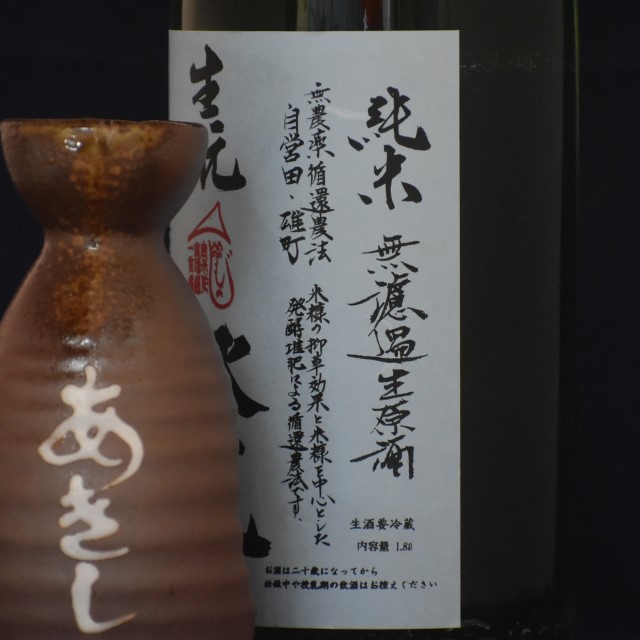 純米 無濾過生原酒
生酒要冷蔵
内容量 1.8ℓ
無農薬循還農法
自営田・雄町
米糠の抑草効果と米糠を中心とした
発酵堆肥による循還農法です。
生酛
お酒は二十歳になってから
妊娠中や授乳期の飲酒はお控えください
あきし